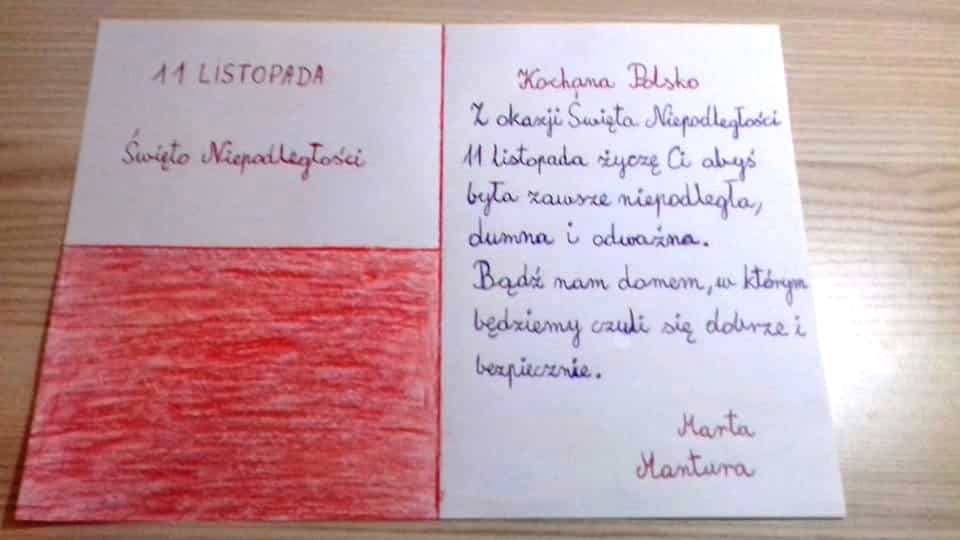 11 LISTOPADA
Święto Niepodległości
Kochana Polsko
Z okazji Święta Niepodległości
11 listopada życzę Ci abyś
była zawsze niepodległa,
dumna i odważna.
Bądź nam domem, w którym
będziemy czuli się dobrze i
bezpiecznie.
Marta
Mantura